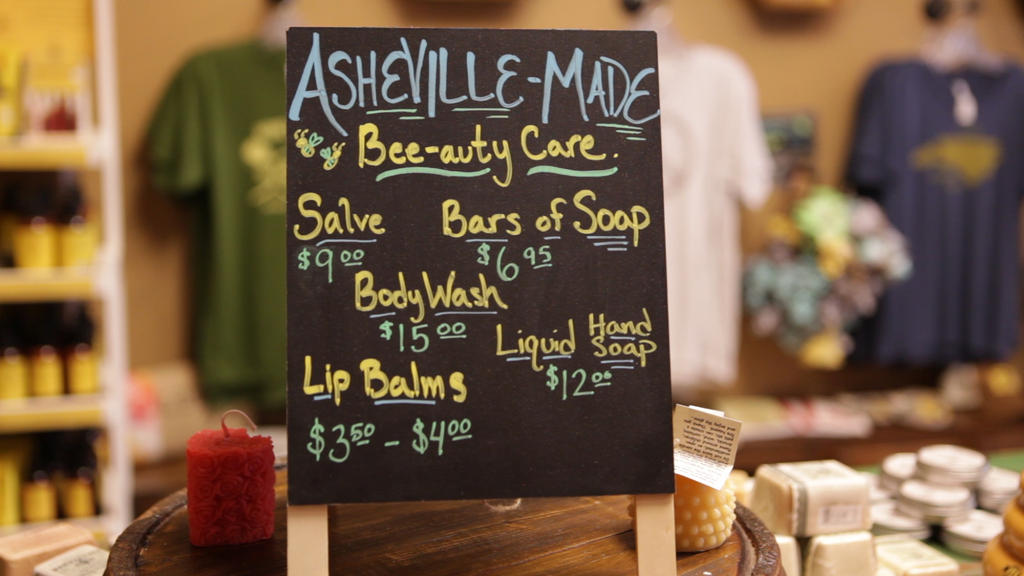 ASHEVILLE-MADE
Bee-auty Care.
Salve
$9.00
Bars of Soap
$6.95
Body Wash
$15.00
Liquid Hand Soap
$12.00
Lip Balms
$3.50 - $4.00